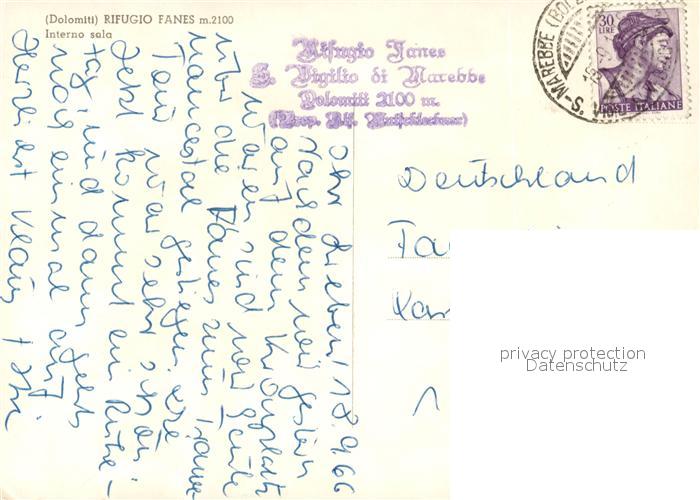 (Dolomiti) RIFUGIO FANES m. 2100
Interno sala
Rifugio Fanes
S. Vigilio di Marebbe
Dolomiti 2100 m.
(Prop. Alf. Mutschlechner)
S. MAREBBE (BOLZ
30
LIRE
POSTE ITALIANE
Ihr Lieben! 18.9.66
Nachdem wir gestern
auf dem Kronplatz
waren sind wir heute
über die Fanes zum
gestiegen. Die
Tour war sehr schön.
Jetzt kommt ein Ruhe-
tag und dann geht's
noch einmal auf
Herzlichst Klaus
Deutschland
Fa
privacy protection
Datenschutz